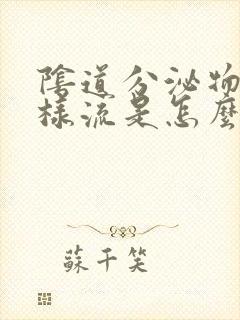 陰道分泌物
樣流是怎麼
蘇千笑